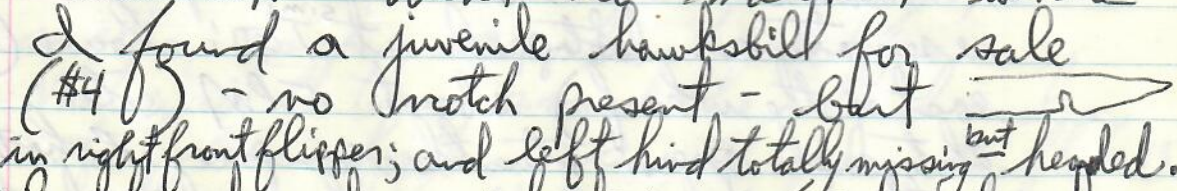 I found a juvenile hawksbill for sale
(#4) - no notch present - but
in right front flipper; and left hind totally missing but healed.